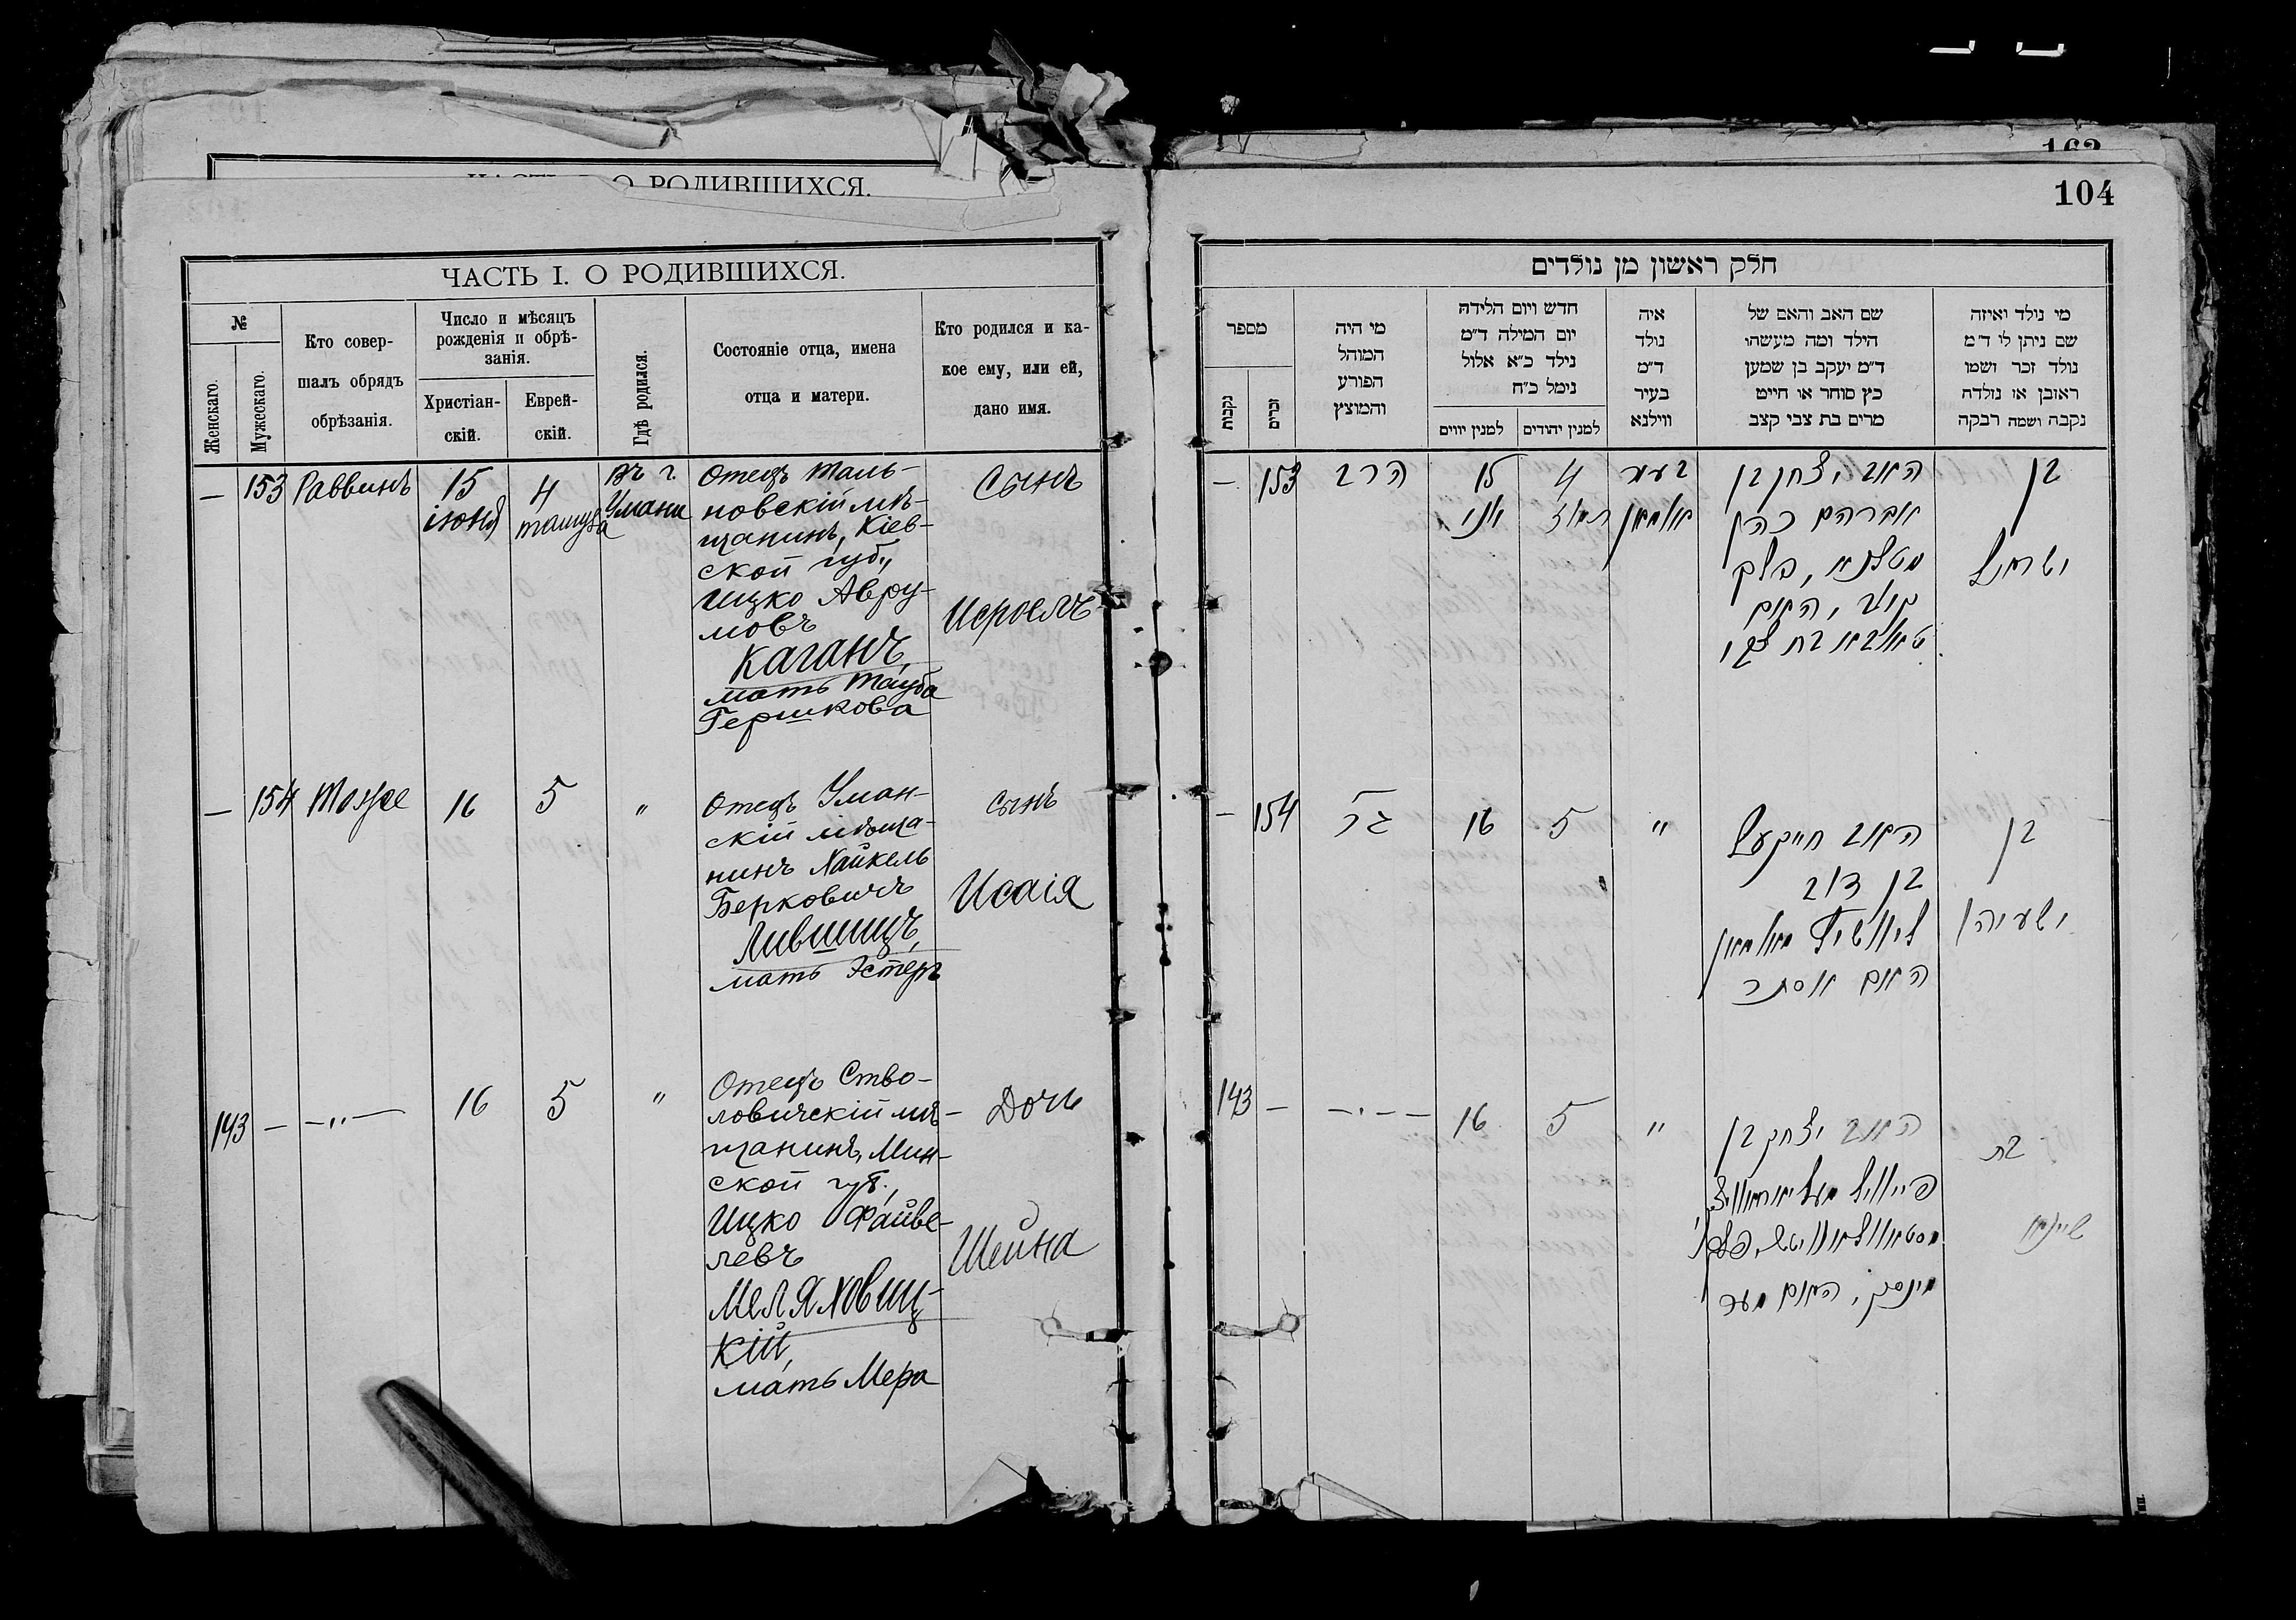 ЧАСТЬ I. О РОДИВШИХСЯ.
ЧАСТЬ I. О РОДИВШИХСЯ.
№
Женскаго.
Мужескаго.
Кто совер-
шалъ обрядъ
обрѣзанія.
Число и мѣсяцъ
рожденія и обрѣ-
занія.
Христіан-
скій.
Еврей-
скій.
Гдѣ родился.
Состояніе отца, имена
отца и матери.
Кто родился и ка-
кое ему, или ей,
дано имя.
— 153 Раввинъ
15
іюня
4
тамуза
въ г.
Умани
Отецъ Таль-
новскій мѣ-
щанинъ, Кіев-
ской губ.,
Ицко Авру-
мовъ
Каганъ,
мать Тауба
Гершкова
Сынъ
Исроелъ
— 154 Тоже 16 5 "
Отецъ Уман-
скій мѣща-
нинъ Хайкель
Берковичъ
Лившицъ,
мать Эстеръ
Сынъ
Исаія
143 — —"— 16 5 "
Отецъ Ство-
ловичскій мѣ-
щанинъ, Мин-
ской губ.,
Ицко Файве-
левъ
Меляховиц-
кій,
мать Мера
Дочь
Шейна
104
חלק ראשון מן נולדים
מספר
נקבות
זכרים
מי היה
המוהל
הפורע
והמוצץ
חדש ויום הלידה
יום המילה ד״מ
נילד כ״א אלול
נימל כ״ח
למנין יווים
למנין יהודים
איה
נולד
ד״מ
בעיר
ווילנא
שם האב והאם של
הילד ומה מעשהו
ד״מ יעקב בן שמען
כץ סוחר או חייט
מרים בת צבי קצב
מי נולד ואיזה
שם ניתן לו ד״מ
נולד זכר ושמו
ראובן או נולדה
נקבה ושמה רבקה
— 153 הרב
15
יוני
4
תמוז
בעיר
אומאן
האב יצחק בן
אברהם כהן
מטלנא, פלך
קיוב, האם
טאובא בת צבי
בן
ישראל
— 154 הנ״ל 16 5 "
האב חייקעל
בן דוב
ליוושיץ מאומאן
האם אסתר
בן
ישעיהו
143 — —·—— 16 5 "
האב יצחק בן
פייוויל
מינסק, האם מערע
בת
שיינא